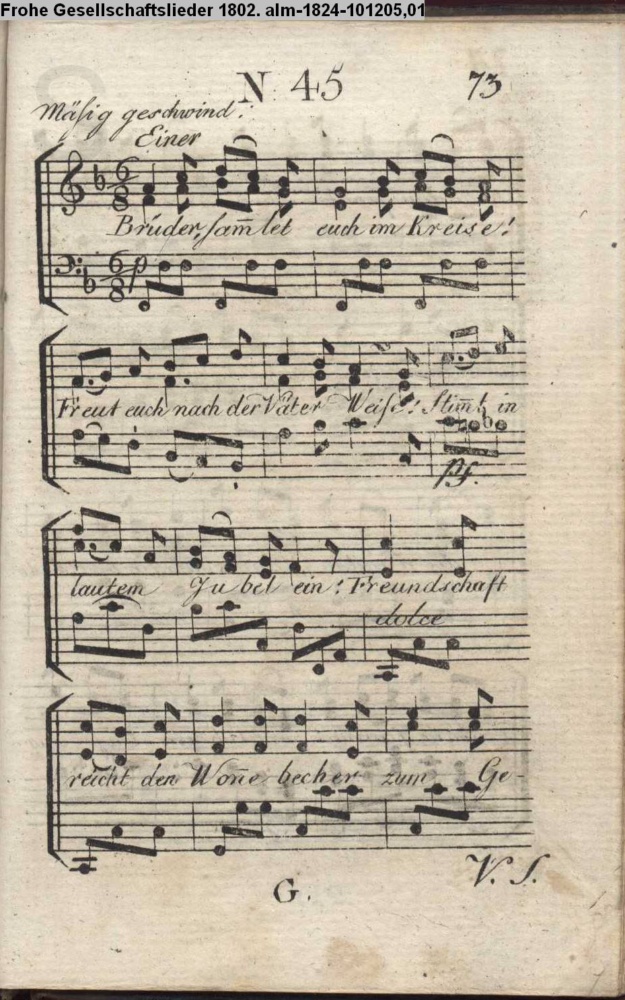 Frohe Gesellschaftslieder 1802. alm-1824-101205,01
N 45 73
Mäßig geschwind.
Einer
Brüder, sam̄let euch im Kreise!
p
Freut euch nach der Väter Weise! Stim̄t in
pf.
lautem Jubel ein! Freundschaft
dolce
reicht den Won̄e becher zum Ge-
G. V. S.